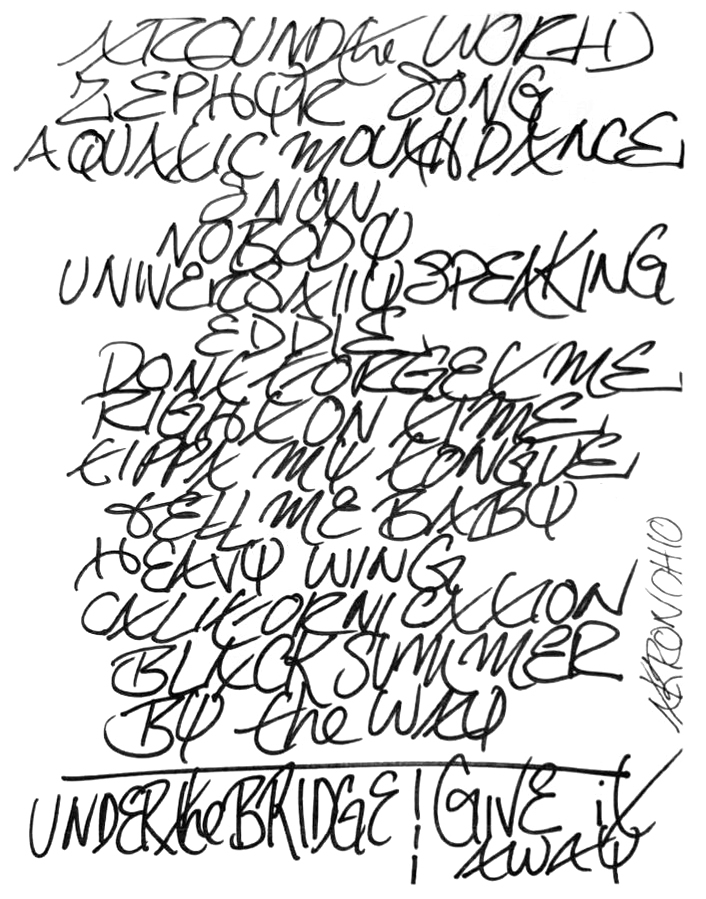 AROUND the WORLD
ZEPHYR SONG
AQUATIC MOUTH DANCE
SNOW
NOBODY
UNIVERSALLY SPEAKING
EDDIE
DONT FORGET ME
RIGHT ON TIME
TIPPA MY TONGUE
TELL ME BABY
HEAVY WING
CALIFORNICATION
BLACK SUMMER
BY the WAY
UNDER the BRIDGE | GIVE iT
AWAY
AKRON OHIO